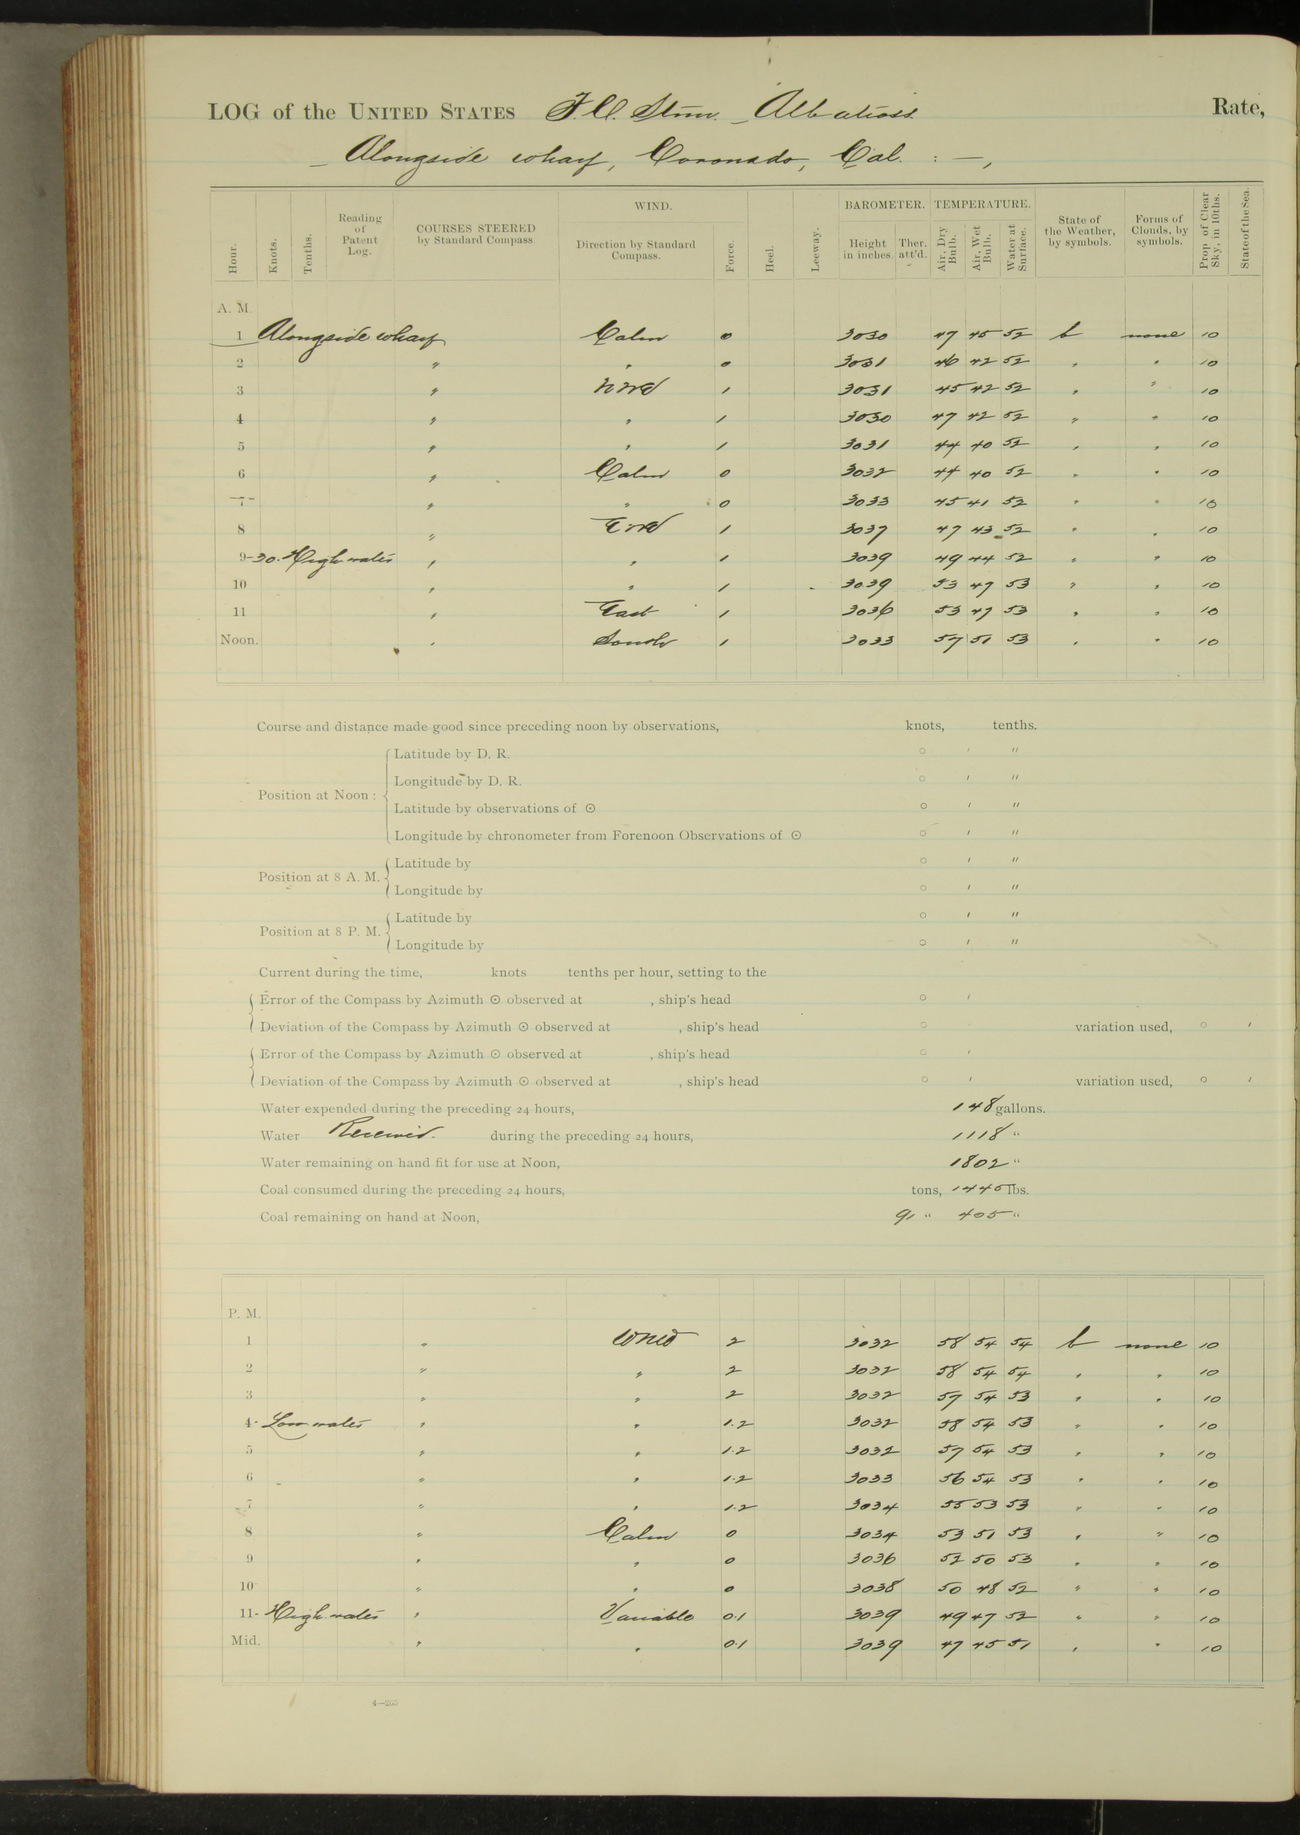 LOG of the UNITED STATES F.C. Stmr. Albatross Rate,
Alongside wharf, Coronado, Cal. : —,
Hour. Knots. Tenths. Reading of Patent Log. COURSES STEERED by Standard Compass WIND. Direction by Standard Compass. Force. Heel. Leeway. BAROMETER. Height in inches. Ther. att'd. TEMPERATURE. Air, Dry Bulb. Air, Wet Bulb. Water at Surface. State of the Weather, by symbols. Forms of Clouds, by symbols. Prop. of Clear Sky, in 10ths. State of the Sea.
A. M.
1 Alongside wharf Calm 0 3030 47 45 52 b none 10
2 " " 0 3031 46 42 52 " " 10
3 " N'ard 1 3031 45 42 52 " " 10
4 " " 1 3030 47 42 52 " " 10
5 " " 1 3031 44 40 52 " " 10
6 " Calm 0 3032 44 40 52 " " 10
7 " " 0 3033 45 41 52 " " 10
8 " E'ard 1 3037 47 43 52 " " 10
9-30. High water " " 1 3039 49 44 52 " " 10
10 " " 1 3039 53 47 53 " " 10
11 " East 1 3036 53 47 53 " " 10
Noon. " South 1 3033 57 51 53 " " 10
Course and distance made good since preceding noon by observations, knots, tenths.
Position at Noon : Latitude by D. R. ○ ′ ″
Longitude by D. R. ○ ′ ″
Latitude by observations of ☉ ○ ′ ″
Longitude by chronometer from Forenoon Observations of ☉ ○ ′ ″
Position at 8 A. M. Latitude by ○ ′ ″
Longitude by ○ ′ ″
Position at 8 P. M. Latitude by ○ ′ ″
Longitude by ○ ′ ″
Current during the time, knots tenths per hour, setting to the
Error of the Compass by Azimuth ☉ observed at , ship's head ○ ′
Deviation of the Compass by Azimuth ☉ observed at , ship's head ○ variation used, ○ ′
Error of the Compass by Azimuth ☉ observed at , ship's head ○ ′
Deviation of the Compass by Azimuth ☉ observed at , ship's head ○ ′ variation used, ○ ′
Water expended during the preceding 24 hours, 148 gallons.
Water Received. during the preceding 24 hours, 1118 "
Water remaining on hand fit for use at Noon, 1802 "
Coal consumed during the preceding 24 hours, tons, 1445 lbs.
Coal remaining on hand at Noon, 91 " 405 "
P. M.
1 " W'ard 2 3032 58 54 54 b none 10
2 " " 2 3032 58 54 54 " " 10
3 " " 2 3032 57 54 53 " " 10
4- Low water " " 1.2 3032 58 54 53 " " 10
5 " " 1.2 3032 57 54 53 " " 10
6 " " 1.2 3033 56 54 53 " " 10
7 " " 1.2 3034 55 53 53 " " 10
8 " Calm 0 3034 53 51 53 " " 10
9 " " 0 3036 52 50 53 " " 10
10 " " 0 3038 50 48 52 " " 10
11- High water " Variable 0.1 3039 49 47 52 " " 10
Mid. " " 0.1 3039 47 45 51 " " 10